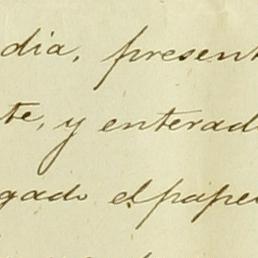 dia, present
te, y enterad
gado el pape